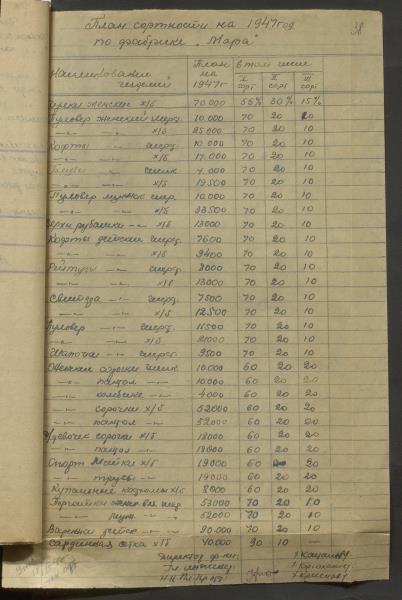 38
План сортности на 1947 год
по фабрике „Мара"
Наименование изделий План на 1947г в том числе
I сорт II сорт III сорт
женские х/б 70.000 55% 30% 15%
Пуловер женский шерст. 10.000 70 20 20
—"— —"— х/б 25.000 70 20 10
Кофты —"— шерст. 10.000 70 20 10
—"— —"— х/б 17.000 70 20 10
—"— шелк 7.000 70 20 10
—"— —"— х/б 19500 70 20 10
Пуловер мужск шер. 10.000 70 20 10
—"— —"— х/б 33500 70 20 10
верхн рубашки —"— х/б 13000 70 20 10
Кофты детские шерст. 7600 70 20 10
—"— —"— х/б 9400 70 20 10
Рейтузы —"— шерст. 8000 70 20 10
—"— —"— х/б 13000 70 20 10
Свитера —"— шерст. 7500 70 20 10
—"— —"— х/б 12.500 70 20 10
Пуловер —"— шерст. 11500 70 20 10
—"— —"— х/б 21000 70 20 10
Шапочки —"— шерст. 9500 70 20 10
Женские сорочки шелк. 10.000 60 20 20
—"— —"— 10.000 60 20 20
—"— —"— 4000 60 20 20
—"— сорочки х/б 52000 60 20 20
—"— —"— 52000 60 20 20
девочек сорочки х/б 18000 60 20 20
—"— —"— 18000 60 20 20
Спорт майки х/б 19000 60 20 20
—"— трусы —"— 19000 60 20 20
Купальные костюмы х/б 8000 60 20 20
Перчатки женск вяз шер 53000 70 20 10
—"— муж —"— 52000 70 20 10
Варежки детск —"— 90.000 70 20 10
сетка х/б 40.000 90 10 —
Директор ф-ки:
Гл. инженер: